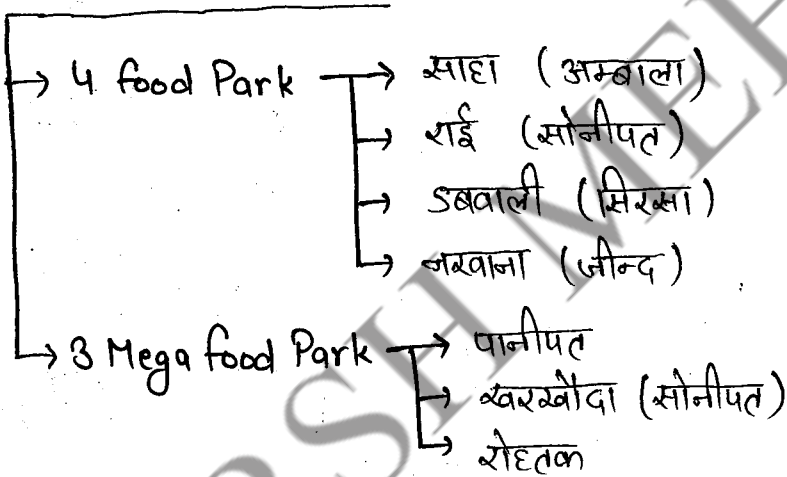 → 4 food Park → साहा (अम्बाला)
→ राई (सोनीपत)
→ डबवाली (सिरसा)
→ नरवाना (जीन्द)
→ 3 Mega food Park → पानीपत
→ खरखौदा (सोनीपत)
→ रोहतक